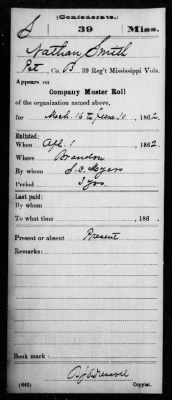 (Confederate.)
S 39 Miss.
Nathan Smith
Pvt, Co. B, 39 Reg't Mississippi Vols.
Appears on
Company Muster Roll
of the organization named above,
for Mch. 16 to June 30, 1862.
Enlisted:
When Apl. 1, 1862.
Where Brandon
By whom Myers
Period 3 yrs
Last paid:
By whom
To what time , 186 .
Present or absent Present
Remarks:
Book mark:
(642) Copyist.